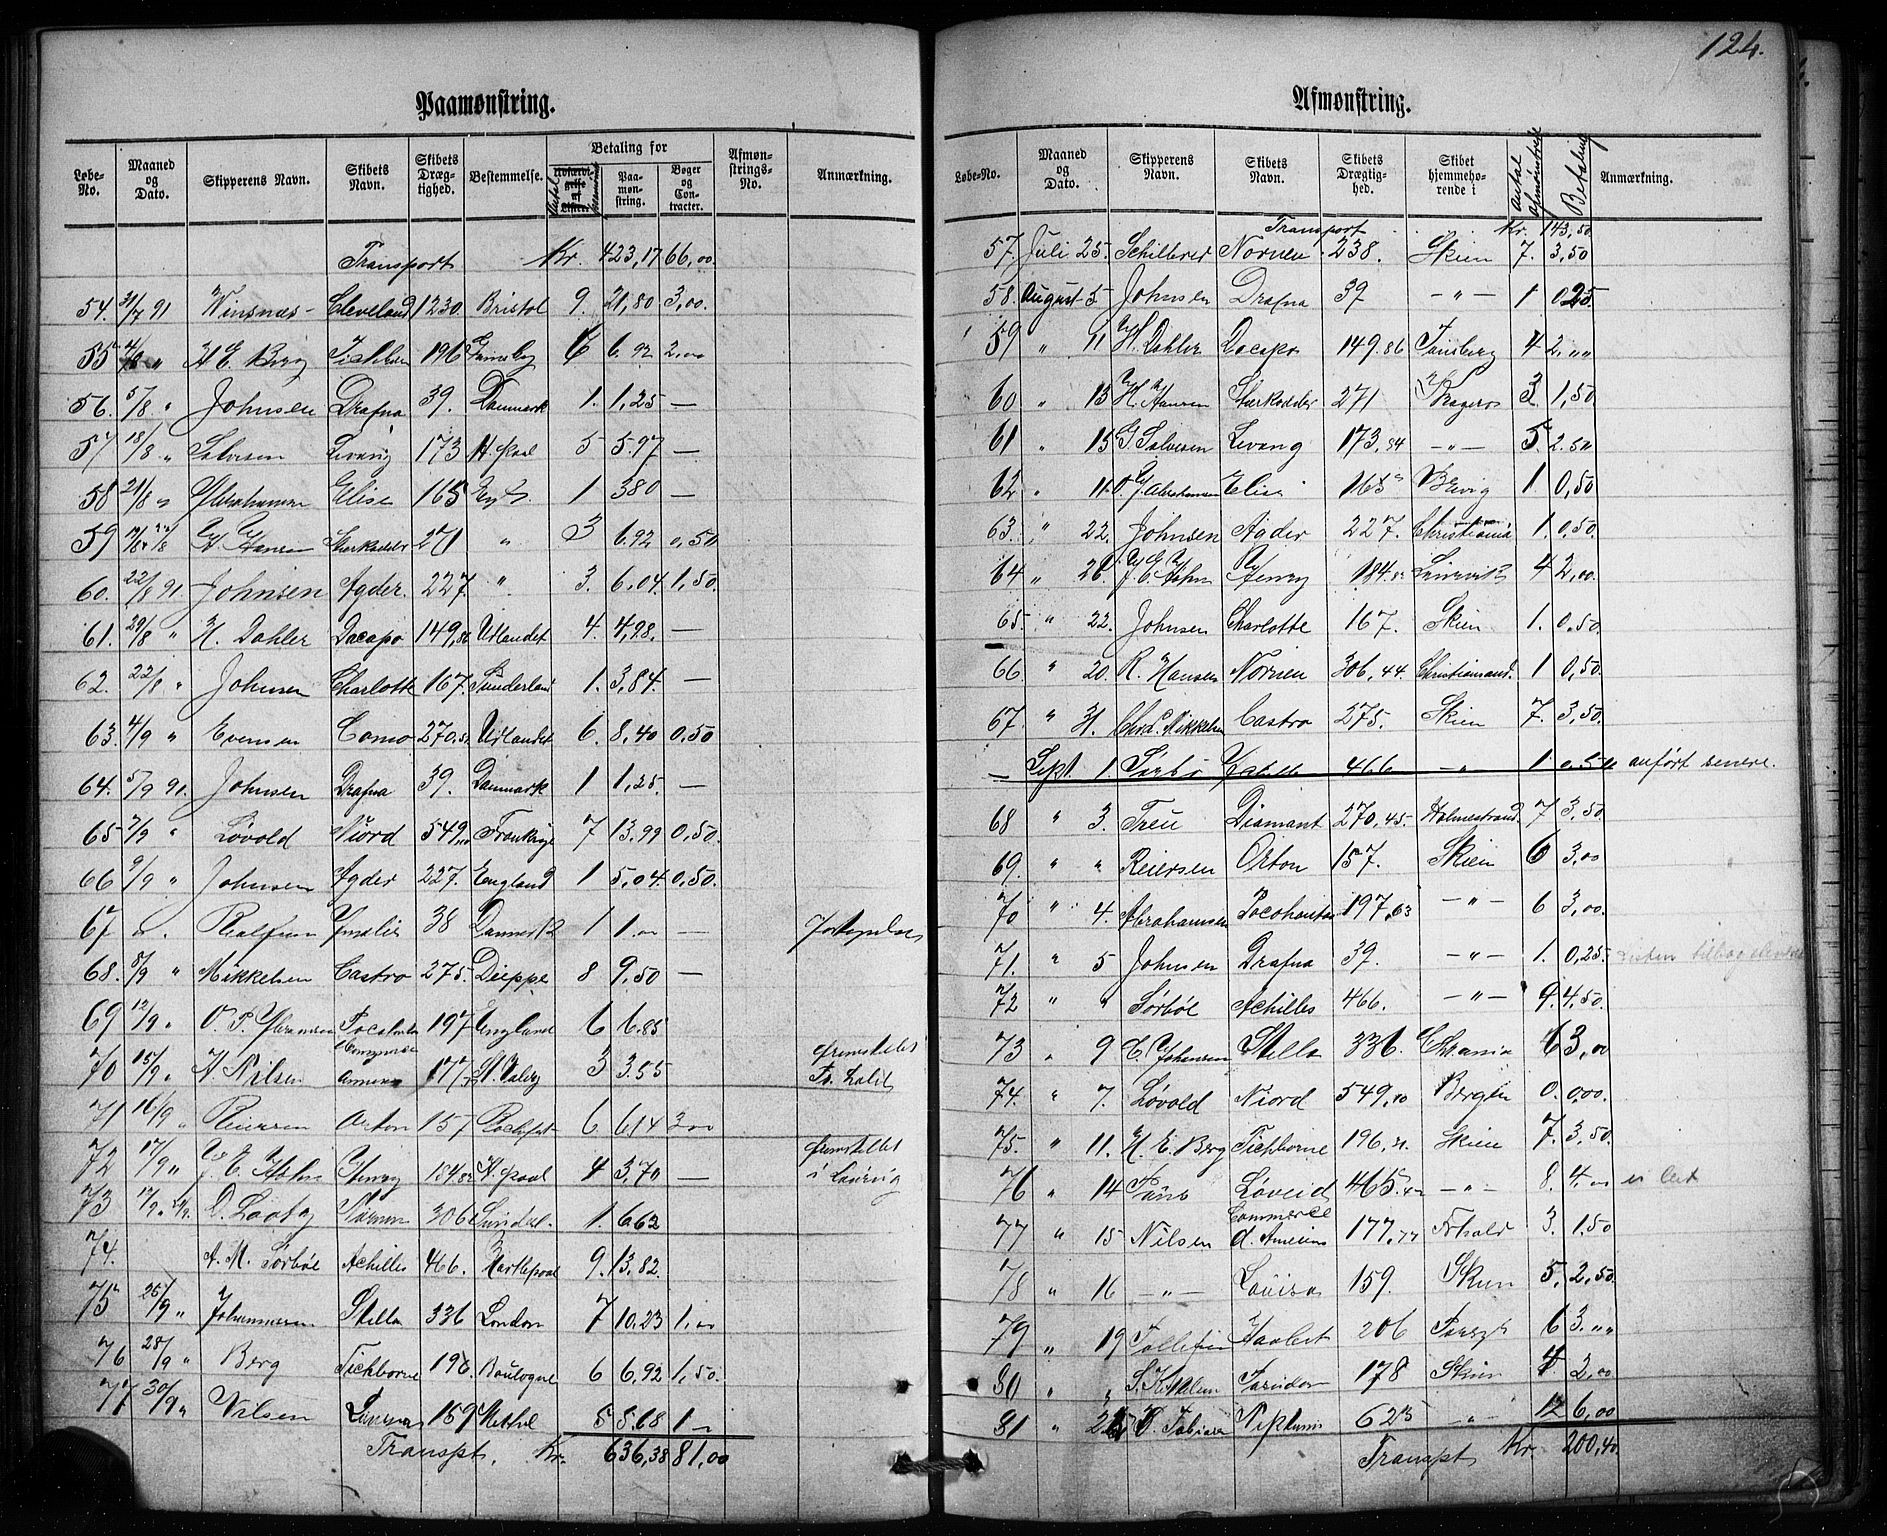 124.
Paamønstring.
Løbe-No. Maaned og Dato. Skipperens Navn. Skibets Navn. Skibets Drægtighed. Bestemmelse. Betaling for Antal Paamønstring. Bøger og Contracter. Afmønstrings-No. Anmærkning.
Transport Kr. 423,17 66,00
54. 31/7 91 Winsnæs Cleveland 1230. Bristol 9. 21,80 3,00
55 4/8 " H E Berg Tichborne 196 6 6.92 2,00
56. 5/8 " Johnsen Drafna 39. Danmark 1. 1,25 —
57 18/8 " Salvesen Levang 173 H.pool 5 5.97 —
58 21/8 " Abrahamsen Elise 165 Engl. 1 380 —
59 22/8 H. Hansen Stærkodder 271 " 3 6.92 0,50
60. 22/8 91. Johnsen Agder. 227. " 3. 6,04 1,50.
61. 29/8 " H. Dahler Dacapo 149,86 Udlandet 4. 4,98. —
62. 22/8 " Johnsen Charlotte 167. Sunderland 1. 3,84. —
63. 4/9 " Evensen Como 270.52 Udlandet 6. 8,40 0,50
64. 5/9 91. Johnsen Drafna 39. Danmark 1 1,25. —
65 7/9 " Løvold Niord 549,10 Frankrige 7 13,99 0,50.
66 9/9 " Johnsen Agder 227. England 1 5,04. 0,50.
67 ". Amalie 38 Danmark 1 1.00 —
68. 8/9 " Mikkelsen Castro 275. Dieppe 8 9,50 —
69 12/9 " Pocahontas 197 England 6 6.85
70 15/9 " A. Nilsen Commerce 177 St. Valery 3 3.55
71 16/9 " Reiersen Orton 157 6 614 3,00
72 17/9 " Henry 184.82 H.pool 4 3,70 —
73 Nornen 306 1. 662
74. A. M. Sørbøe Achilles 466. Hartlepool 9. 13,82.
75 26/9 " Johannesen Stella 336 London 7 10.23 1,00
76 28/9 " Berg Tichborne 196 Boulogne 6 6,92 1,50.
77 30/9 " Nilsen Lovisa 159 Methil 5 5.68 1 —
Transpt. Kr. 636,38 81,00
Afmønstring.
Løbe-No. Maaned og Dato. Skipperens Navn. Skibets Navn. Skibets Drægtighed. Skibet hjemmehørende i Antal afmønstrede Betaling Anmærkning.
Transport Kr. 143,50
57. Juli 25. Nornen 238. Skien 7. 3,50
58. August 5. Johnsen Drafna 39 — " — 1 0,25.
59 " 11 H. Dahler Dacapo 149.86 Tønsberg 4 2,""
60 " 13 H. Hansen Stærkodder 271 Kragerø 3 1,50
61 " 15 G Salvesen Levang 173,84 — " — 5. 2.50
62 " 11. Abrahamsen Elise 165 Brevig 1 0,50
63. " 22. Johnsen Agder 227. Christiania 1. 0,50.
64 " 26. Henry 184.82 Laurvik 4 2,00.
65 " 22. Johnsen Charlotte 167. Skien 1. 0,50.
66 " 20. R. Hansen Nornen 306,44. Christiansand. 1 0,50.
67. " 31. Chrd. Mikkelsen Castro 275. Skien 7. 3,50.
Sept. 1. Sørbø 466 — " — 1 0,50 anført senere.
68 " 3. Treu Diamant 270,45. Holmestrand. 7 3,50.
69. " " Reiersen Orton 157. Skien 6 3,00
70 " 4. Abrahamsen Pocohontas 197,63 — " — 6 3,00.
71. " 5 Johnsen Drafna 39. — " — 1. 0,25. Listen
72 " " Sørbøe Achilles 466. — " — 9. 4,50.
73 " 9 C. Johansen Stella 336. Chrania 6 3,00
74. " 7. Løvold Niord 549,10 Bergen 0. 0,00.
75. " 11. H. E. Berg Tichborne 196, Skien 7. 3,50.
76 " 14 Løveid 465. — " — 8. 4,00
77 " 15 Nilsen Commerce d. Amiens 177,77 3. 1.50
78 " 16 — " — Lovisa 159. Skien 5. 2,50.
79 " 19 Tollefsen 206 6 3.""
80 " " 178 Skien 4 2,00
81 " Neptunus 625 — " — 12 6,00
Transpt Kr. 200,40